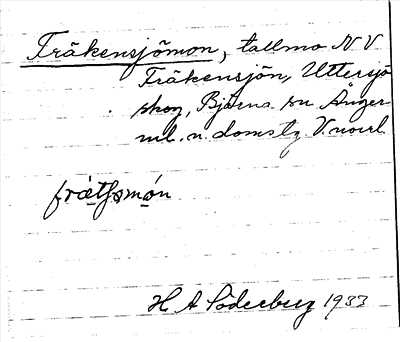 Fräkensjömon, tallmo NV
Fräkensjön, Uttersjö
skog, Björna sn Ånger-
ml. n. doms tg V.norrl.
H A Söderberg 1933